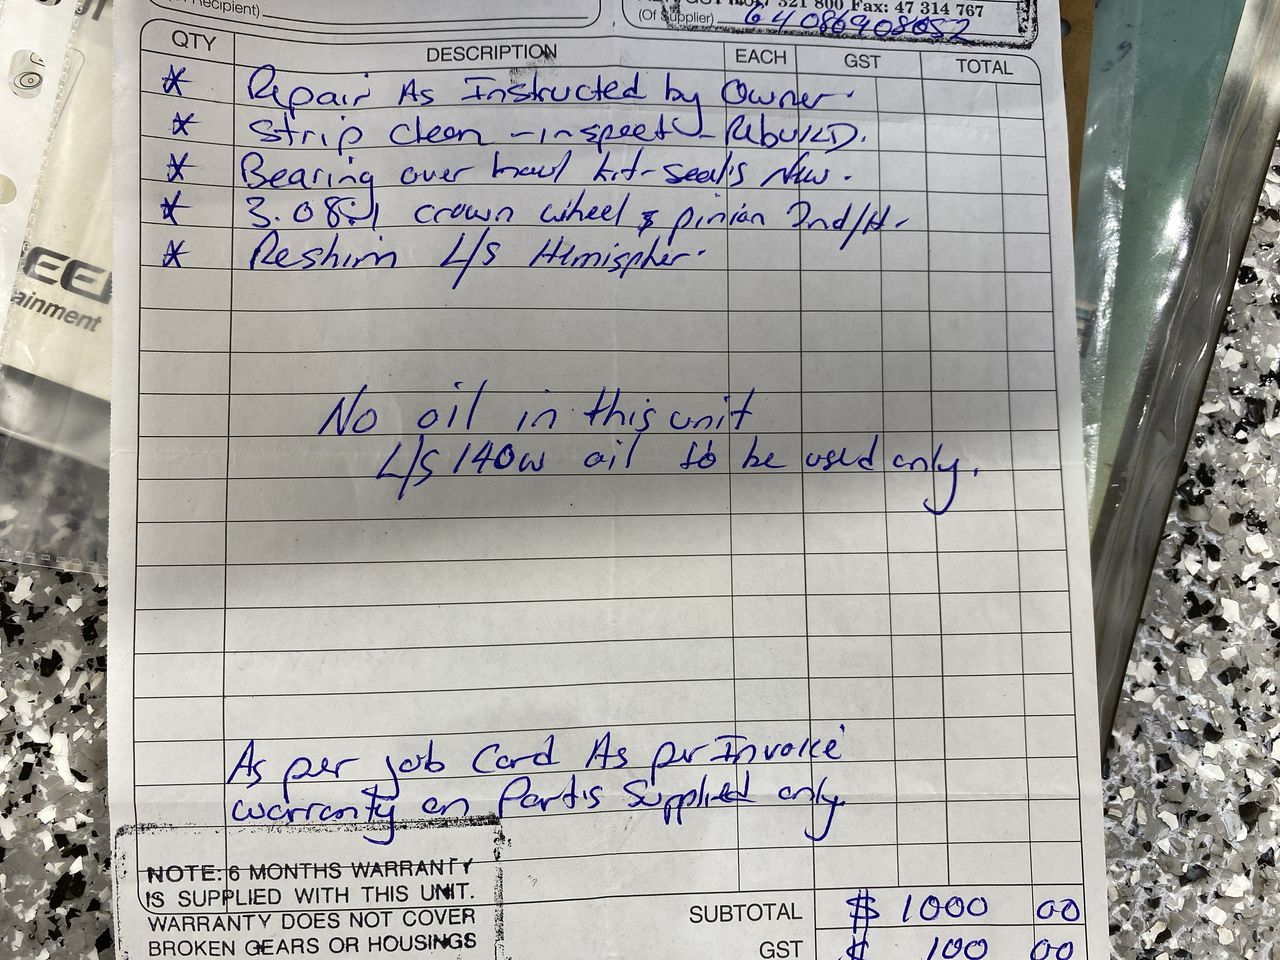 (Of Recipient)
321 800 Fax: 47 314 767
(Of Supplier) 64086908652
QTY DESCRIPTION EACH GST TOTAL
* Repair As Instructed by Owner.
* Strip Clean - inspect - RebuiLD.
* Bearing over haul kit - seals New.
* 3.08:1 crown wheel & pinian 2nd/H.
* Reshim L/S Hemispher.
No oil in this unit
L/S 140w oil to be used only.
As per job Card As per Invoice
warranty on Parts Supplied only.
NOTE: 6 MONTHS WARRANTY
IS SUPPLIED WITH THIS UNIT.
WARRANTY DOES NOT COVER
BROKEN GEARS OR HOUSINGS
SUBTOTAL $ 1000 00
GST $ 100 00
EEI
ainment